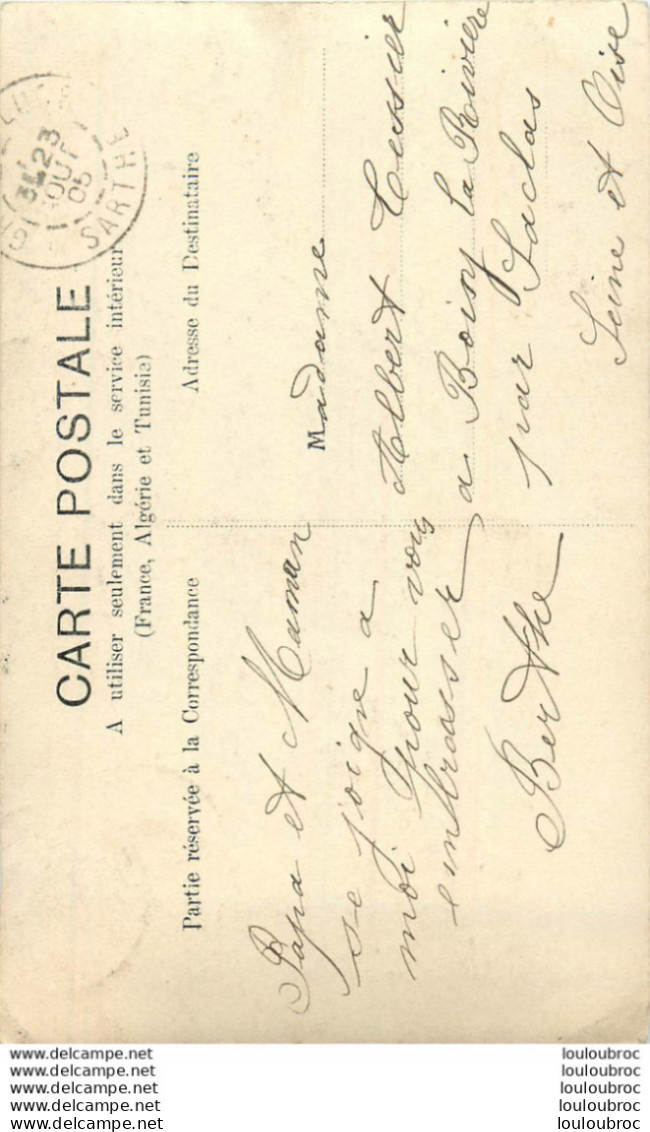 CARTE POSTALE
A utiliser seulement dans le service intérieur
(France, Algérie et Tunisie)
Partie réservée à la Correspondance
Papa et Maman
se joigne a
moi pour vous
embrasser
Berthe
Adresse du Destinataire
Madame
Albert Tessier
a Boissy la Rivière
par Saclas
Seine et Oise
23
AOUT
05
SARTHE
www.delcampe.net
www.delcampe.net
www.delcampe.net
www.delcampe.net
www.delcampe.net
louloubroc
louloubroc
louloubroc
louloubroc
louloubroc